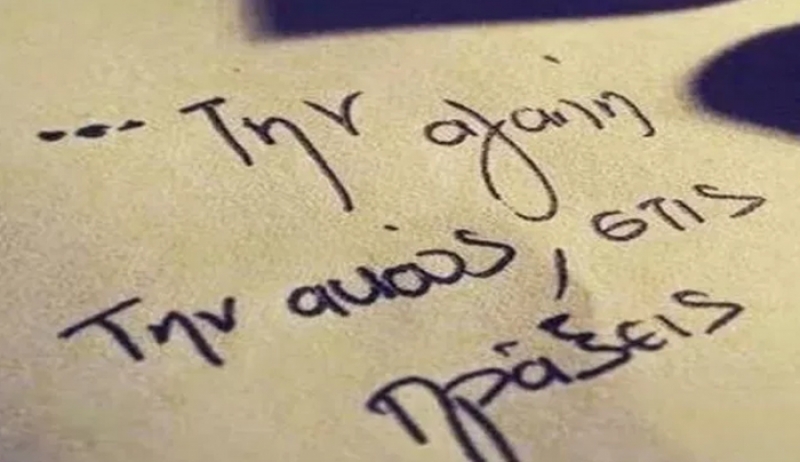 ... Την αγάπη
Την ακούς, στις
πράξεις